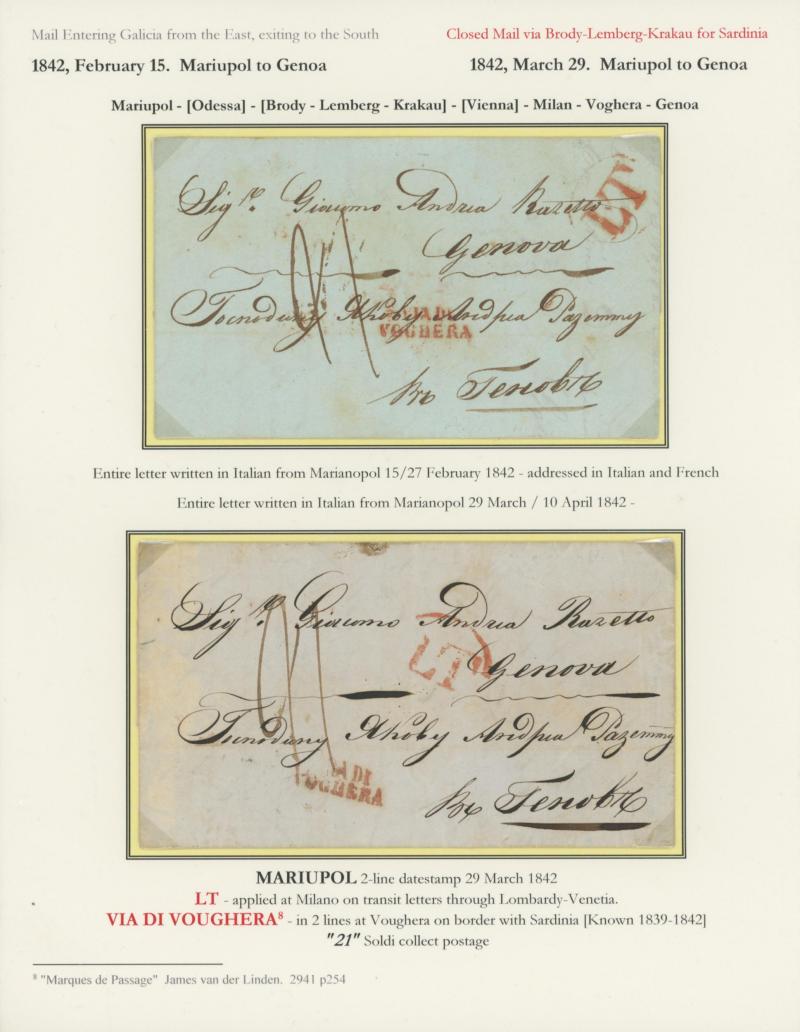 Mail Entering Galicia from the East, exiting to the South
Closed Mail via Brody-Lemberg-Krakau for Sardinia
1842, February 15. Mariupol to Genoa
1842, March 29. Mariupol to Genoa
Mariupol - [Odessa] - [Brody - Lemberg - Krakau] - [Vienna] - Milan - Voghera - Genoa
Sig.re Giacomo Andrea Razetto
LT
Genova
Господину Якобу Андреа Разетту
VIA DI
VOGHERA
въ Геновѣ
Entire letter written in Italian from Marianopol 15/27 February 1842 - addressed in Italian and French
Entire letter written in Italian from Marianopol 29 March / 10 April 1842 -
Sig.re Giacomo Andrea Razetto
LT
Genova
Господину Якобу Андреа Разетту
VIA DI
VOGHERA
въ Геновѣ
MARIUPOL 2-line datestamp 29 March 1842
LT - applied at Milano on transit letters through Lombardy-Venetia.
VIA DI VOUGHERA⁸ - in 2 lines at Voughera on border with Sardinia [Known 1839-1842]
"21" Soldi collect postage
⁸ "Marques de Passage" James van der Linden. 2941 p254